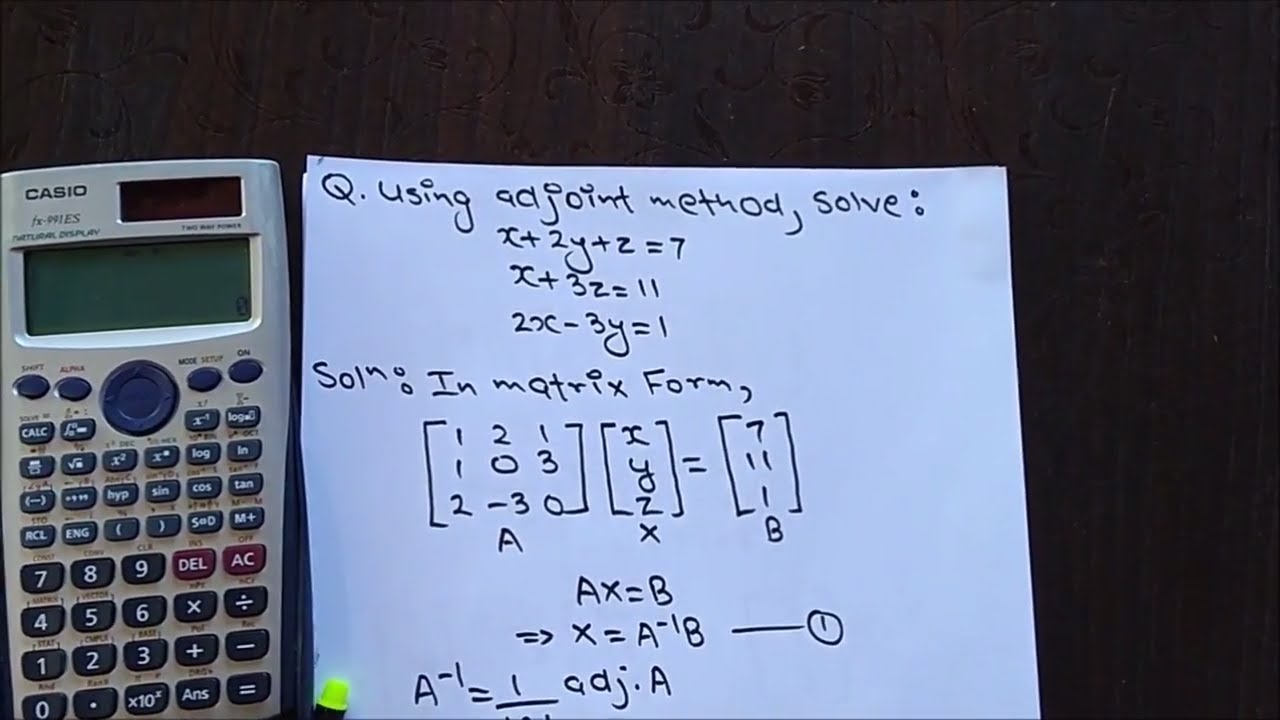 CASIO
fx-991ES
NATURAL DISPLAY
TWO WAY POWER
SHIFT ALPHA MODE SETUP ON
CALC x⁻¹ log
x² log ln
(−) hyp sin cos tan
RCL ENG ( ) S⇔D M+
7 8 9 DEL AC
4 5 6 × ÷
1 2 3 + −
0 . ×10ˣ Ans =
Q. Using adjoint method, solve:
x+2y+z=7
x+3z=11
2x-3y=1
Solⁿ: In matrix Form,
[1 2 1] [x] = [7]
[1 0 3] [y] [11]
[2 -3 0] [z] [1]
A X B
AX=B
=> X=A⁻¹B —— ①
A⁻¹= 1 adj.A